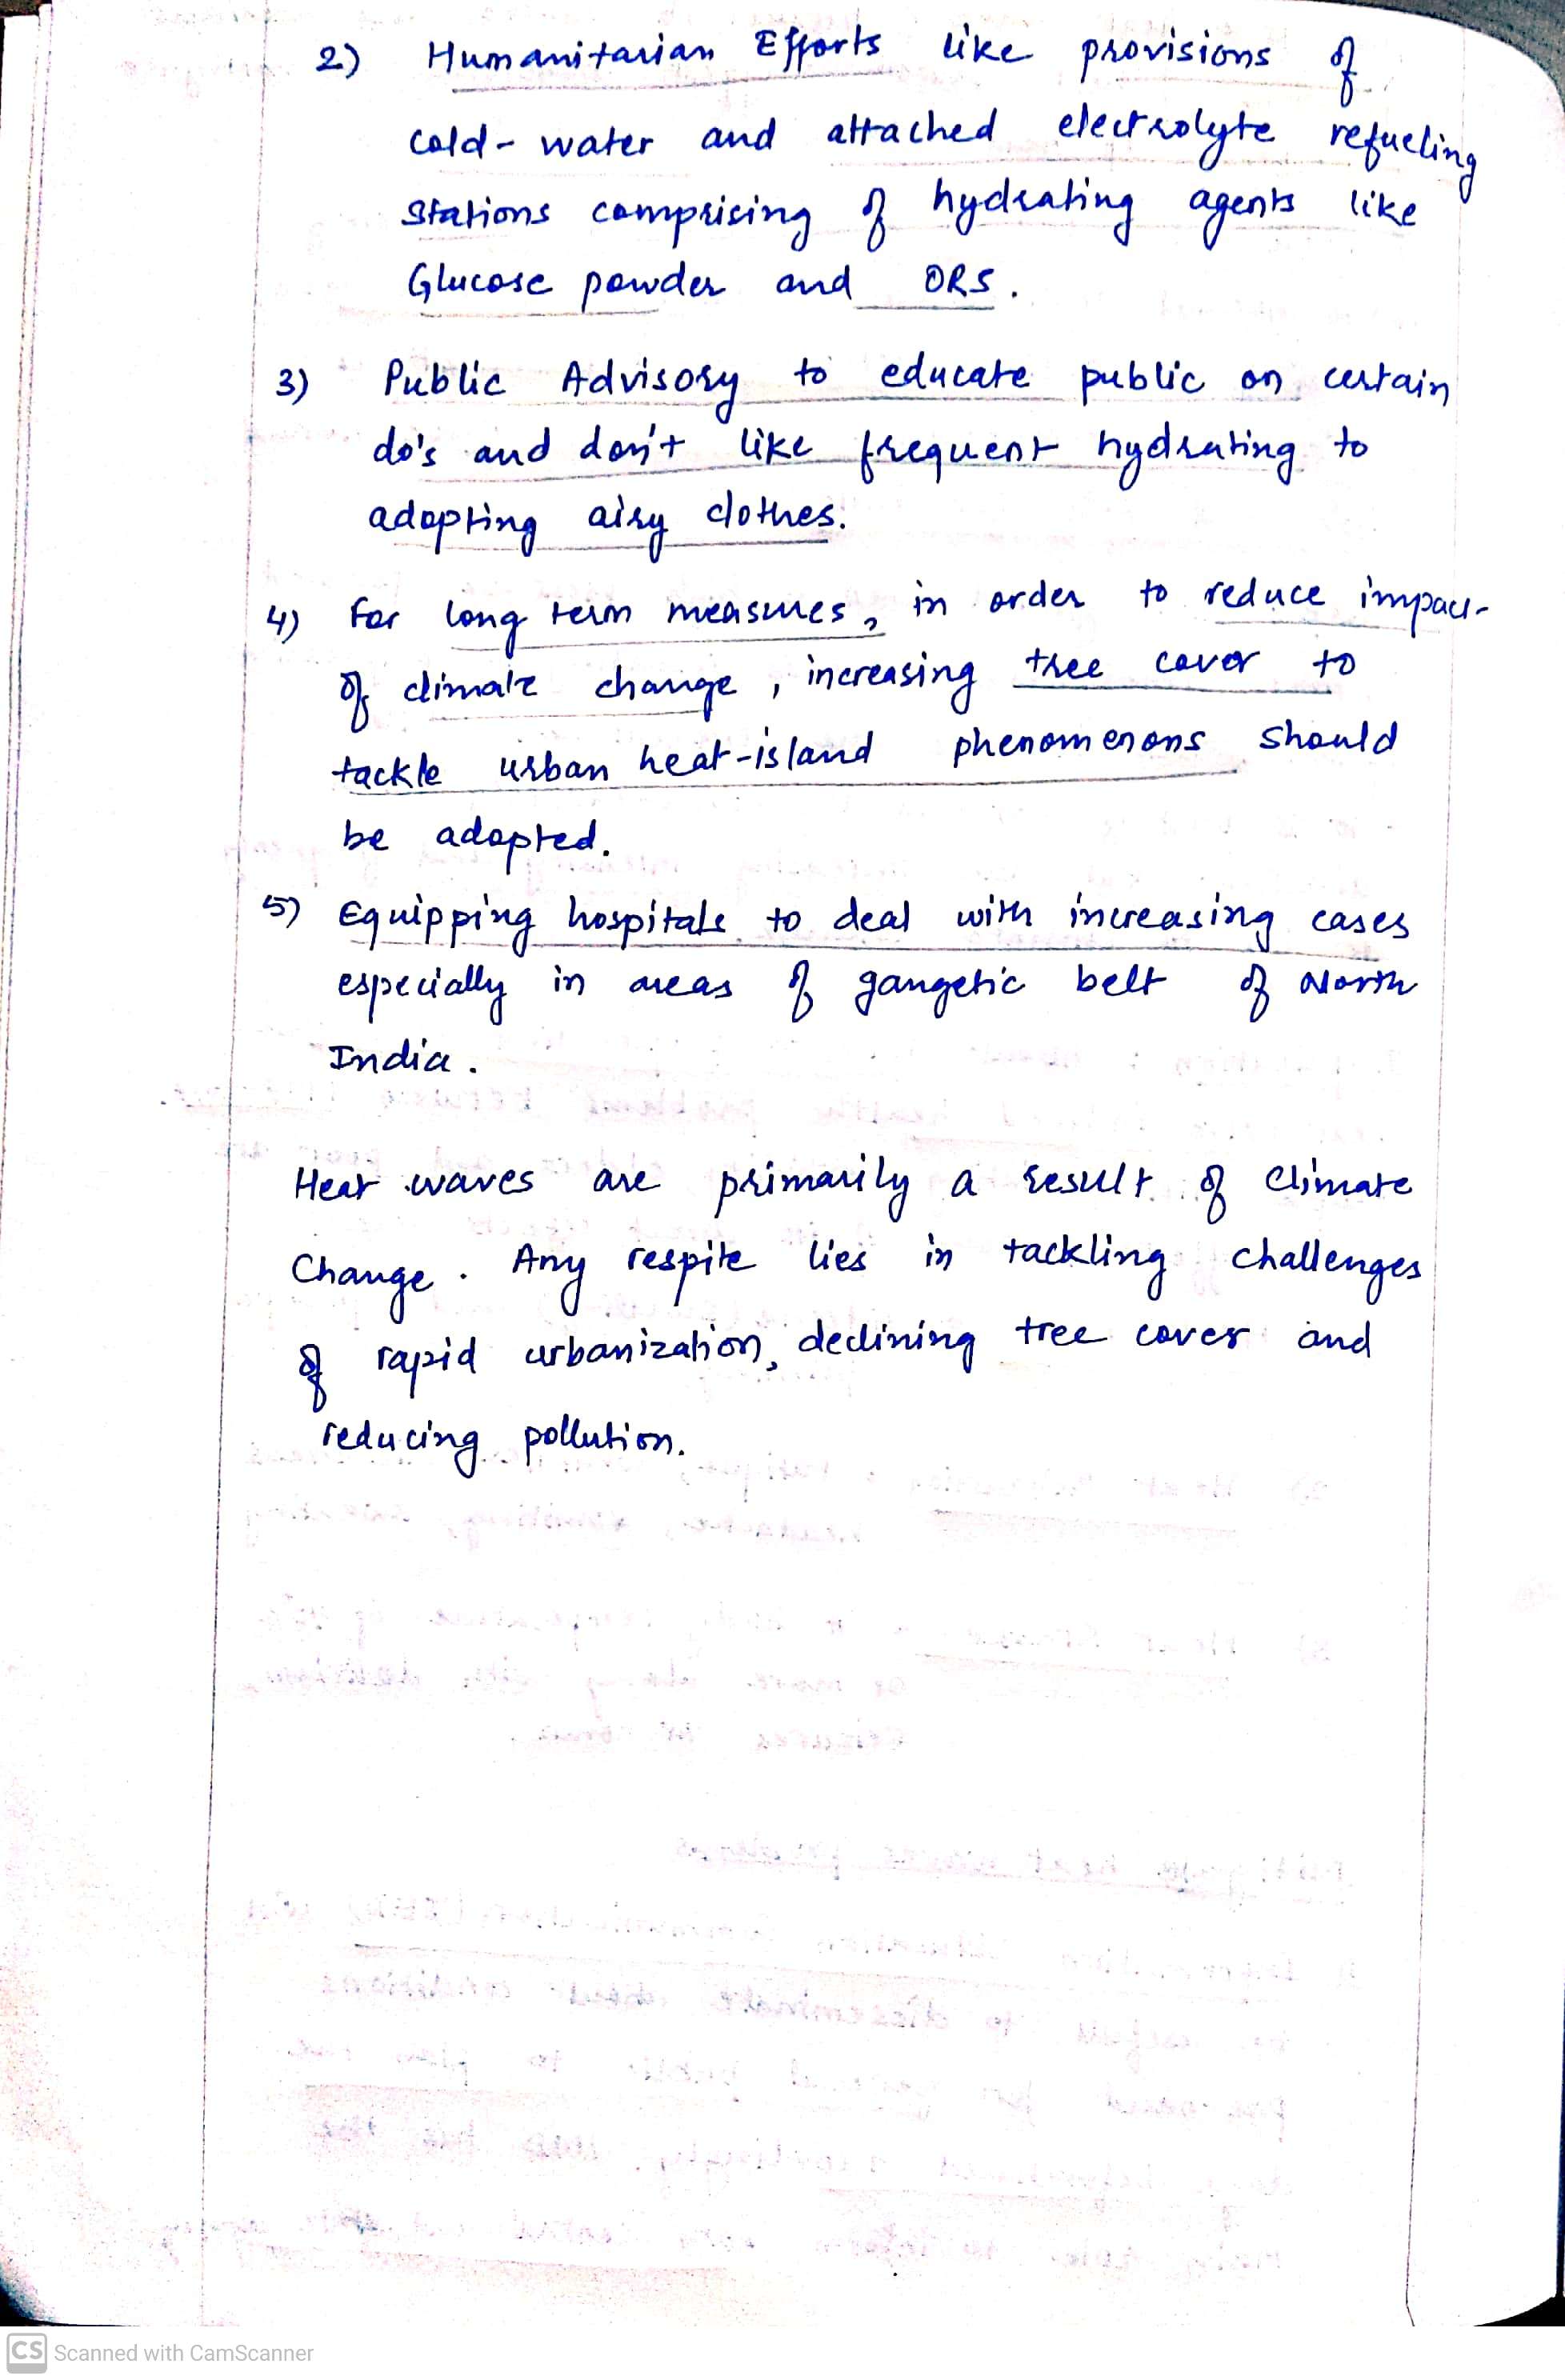 2) Humanitarian Efforts like provisions of
cold-water and attached electrolyte refueling
stations comprising of hydrating agents like
Glucose powder and ORS.
3) Public Advisory to educate public on certain
do's and don't like frequent hydrating to
adopting airy clothes.
4) For long term measures, in order to reduce impact
of climate change, increasing tree cover to
tackle urban heat-island phenomenons should
be adopted.
5) Equipping hospitals to deal with increasing cases
especially in areas of gangetic belt of North
India.
Heat waves are primarily a result of Climate
Change. Any respite lies in tackling challenges
of rapid urbanization, declining tree cover and
reducing pollution.
CS Scanned with CamScanner